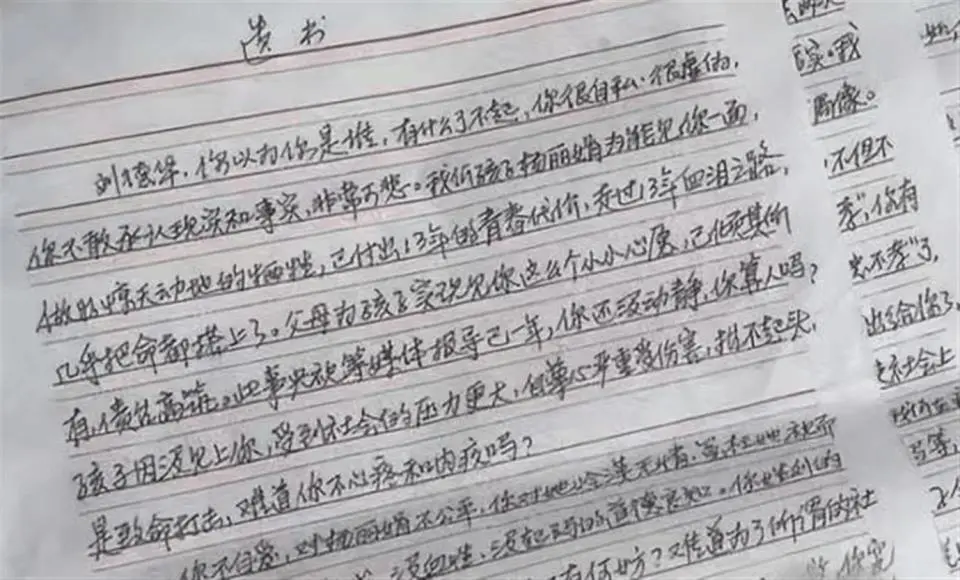 遗书
刘德华,你以为你是谁,有什么了不起,你很自私,很虚伪,
你不敢承认现实和事实,非常可悲。我们孩子杨丽娟为能见你一面,
做出惊天动地的牺牲,已付出13年的青春代价,走过13年血泪之路,
几乎把命都搭上了。父母为孩子实现见你这么个小小心愿,已倾其所
有,债台高筑。此事央视等媒体报导已一年,你还没动静,你算人吗?
孩子因没见上你,受到社会的压力更大,自尊心严重受伤害,抬不起头,
是致命打击,难道你不心疼和内疚吗?
你不自爱,对杨丽娟不公平,你对她冷漠无情,
没血性,没起码的道德良知。你
有何妨?难道为了所谓的社
实。我
局像。
不但不
孝",你有
不孝"了,
出给你了
社会上
等,